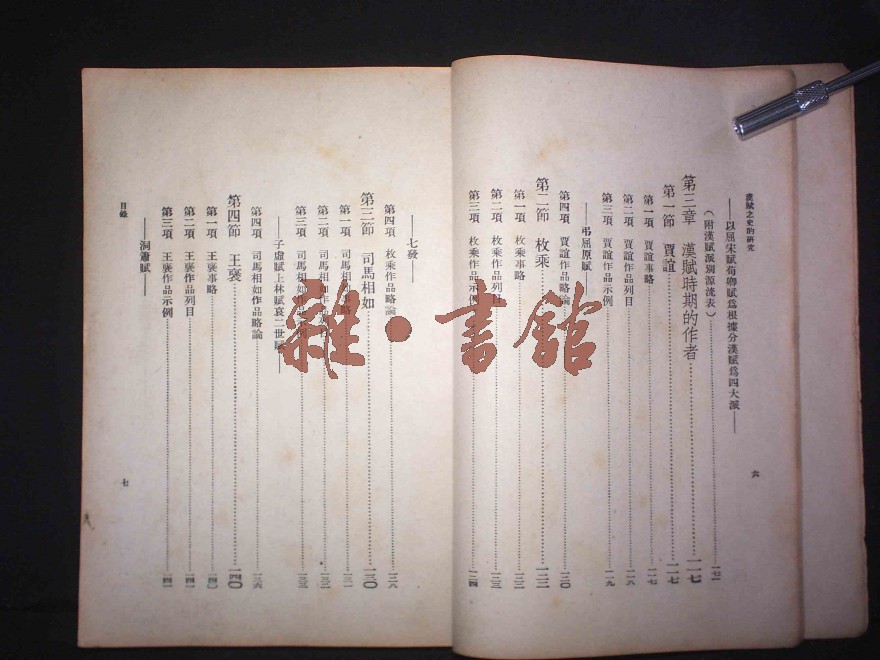 漢賦之史的研究
——以屈宋賦荀卿賦爲根據分漢賦爲四大派——
(附漢賦派別源流表)
第三章 漢賦時期的作者 一一七
第一節 賈誼 一一七
第一項 賈誼事略 一一七
第二項 賈誼作品列目 一一八
第三項 賈誼作品示例 一一九
——弔屈原賦
第四項 賈誼作品略論 一二〇
第二節 枚乘 一二二
第一項 枚乘事略
第二項 枚乘作品列目
第三項 枚乘作品示例 一二四
六
——七發——
第四項 枚乘作品略論 一二八
第三節 司馬相如 一三〇
第一項 司馬相如事略 一三一
第二項 司馬相如作品列目
第三項 司馬相如作品示例
——子虛賦上林賦哀二世賦——
第四項 司馬相如作品略論 一三八
第四節 王褒 一四〇
第一項 王褒事略 一四〇
第二項 王褒作品列目 一四一
第三項 王褒作品示例 一四一
——洞簫賦——
目錄
七
雜·書館